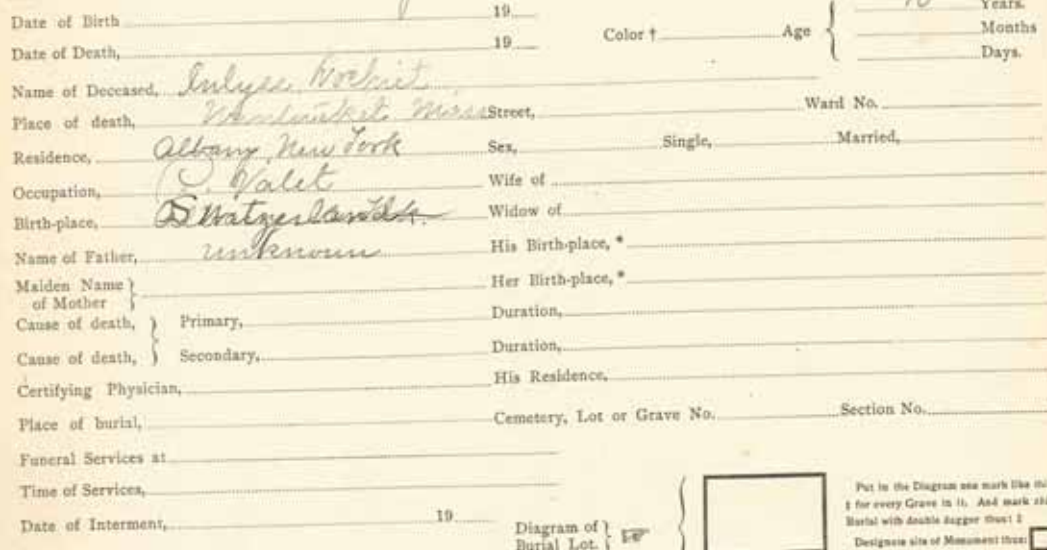 Date of Birth 19
Years.
Date of Death, 19 Color † Age Months
Days.
Name of Deceased,
Place of death, Mass Street, Ward No.
Residence, Albany, New York Sex, Single, Married,
Occupation, Valet Wife of
Birth-place, Widow of
Name of Father, unknown His Birth-place, *
Maiden Name of Mother Her Birth-place, *
Cause of death, Primary, Duration,
Cause of death, Secondary, Duration,
Certifying Physician, His Residence,
Place of burial, Cemetery, Lot or Grave No. Section No.
Funeral Services at
Time of Services,
Date of Interment, 19
Diagram of Burial Lot.
Put in the Diagram one mark like
‡ for every Grave in it. And mark
Burial with double dagger thus: ‡
Designate site of Monument thus: